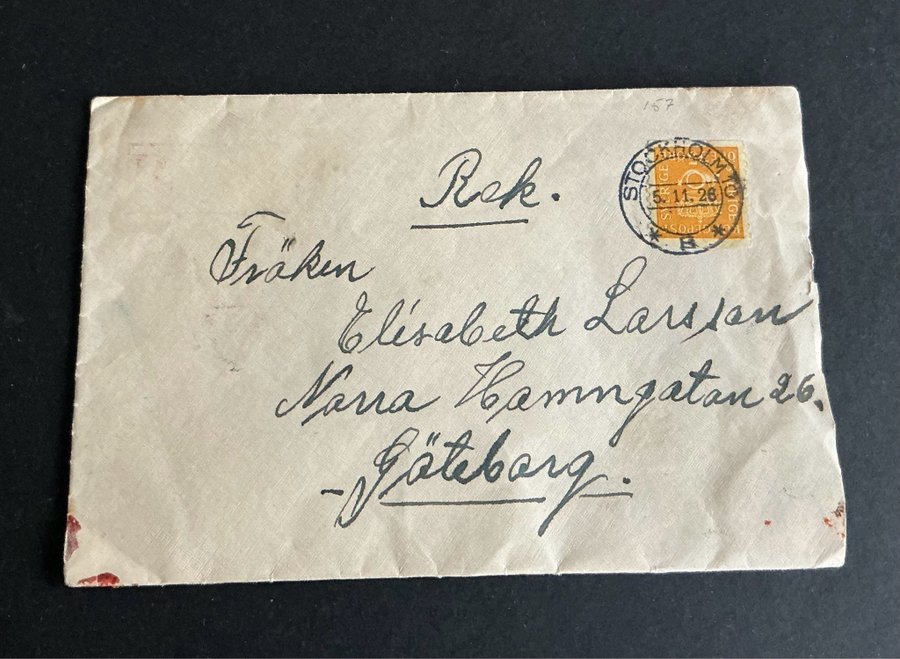 157
Rek.
STOCKHOLM TUR
5.11.26
* B *
SVERIGE
Fröken
Elisabeth Larsson
Norra Hamngatan 26.
- Göteborg.